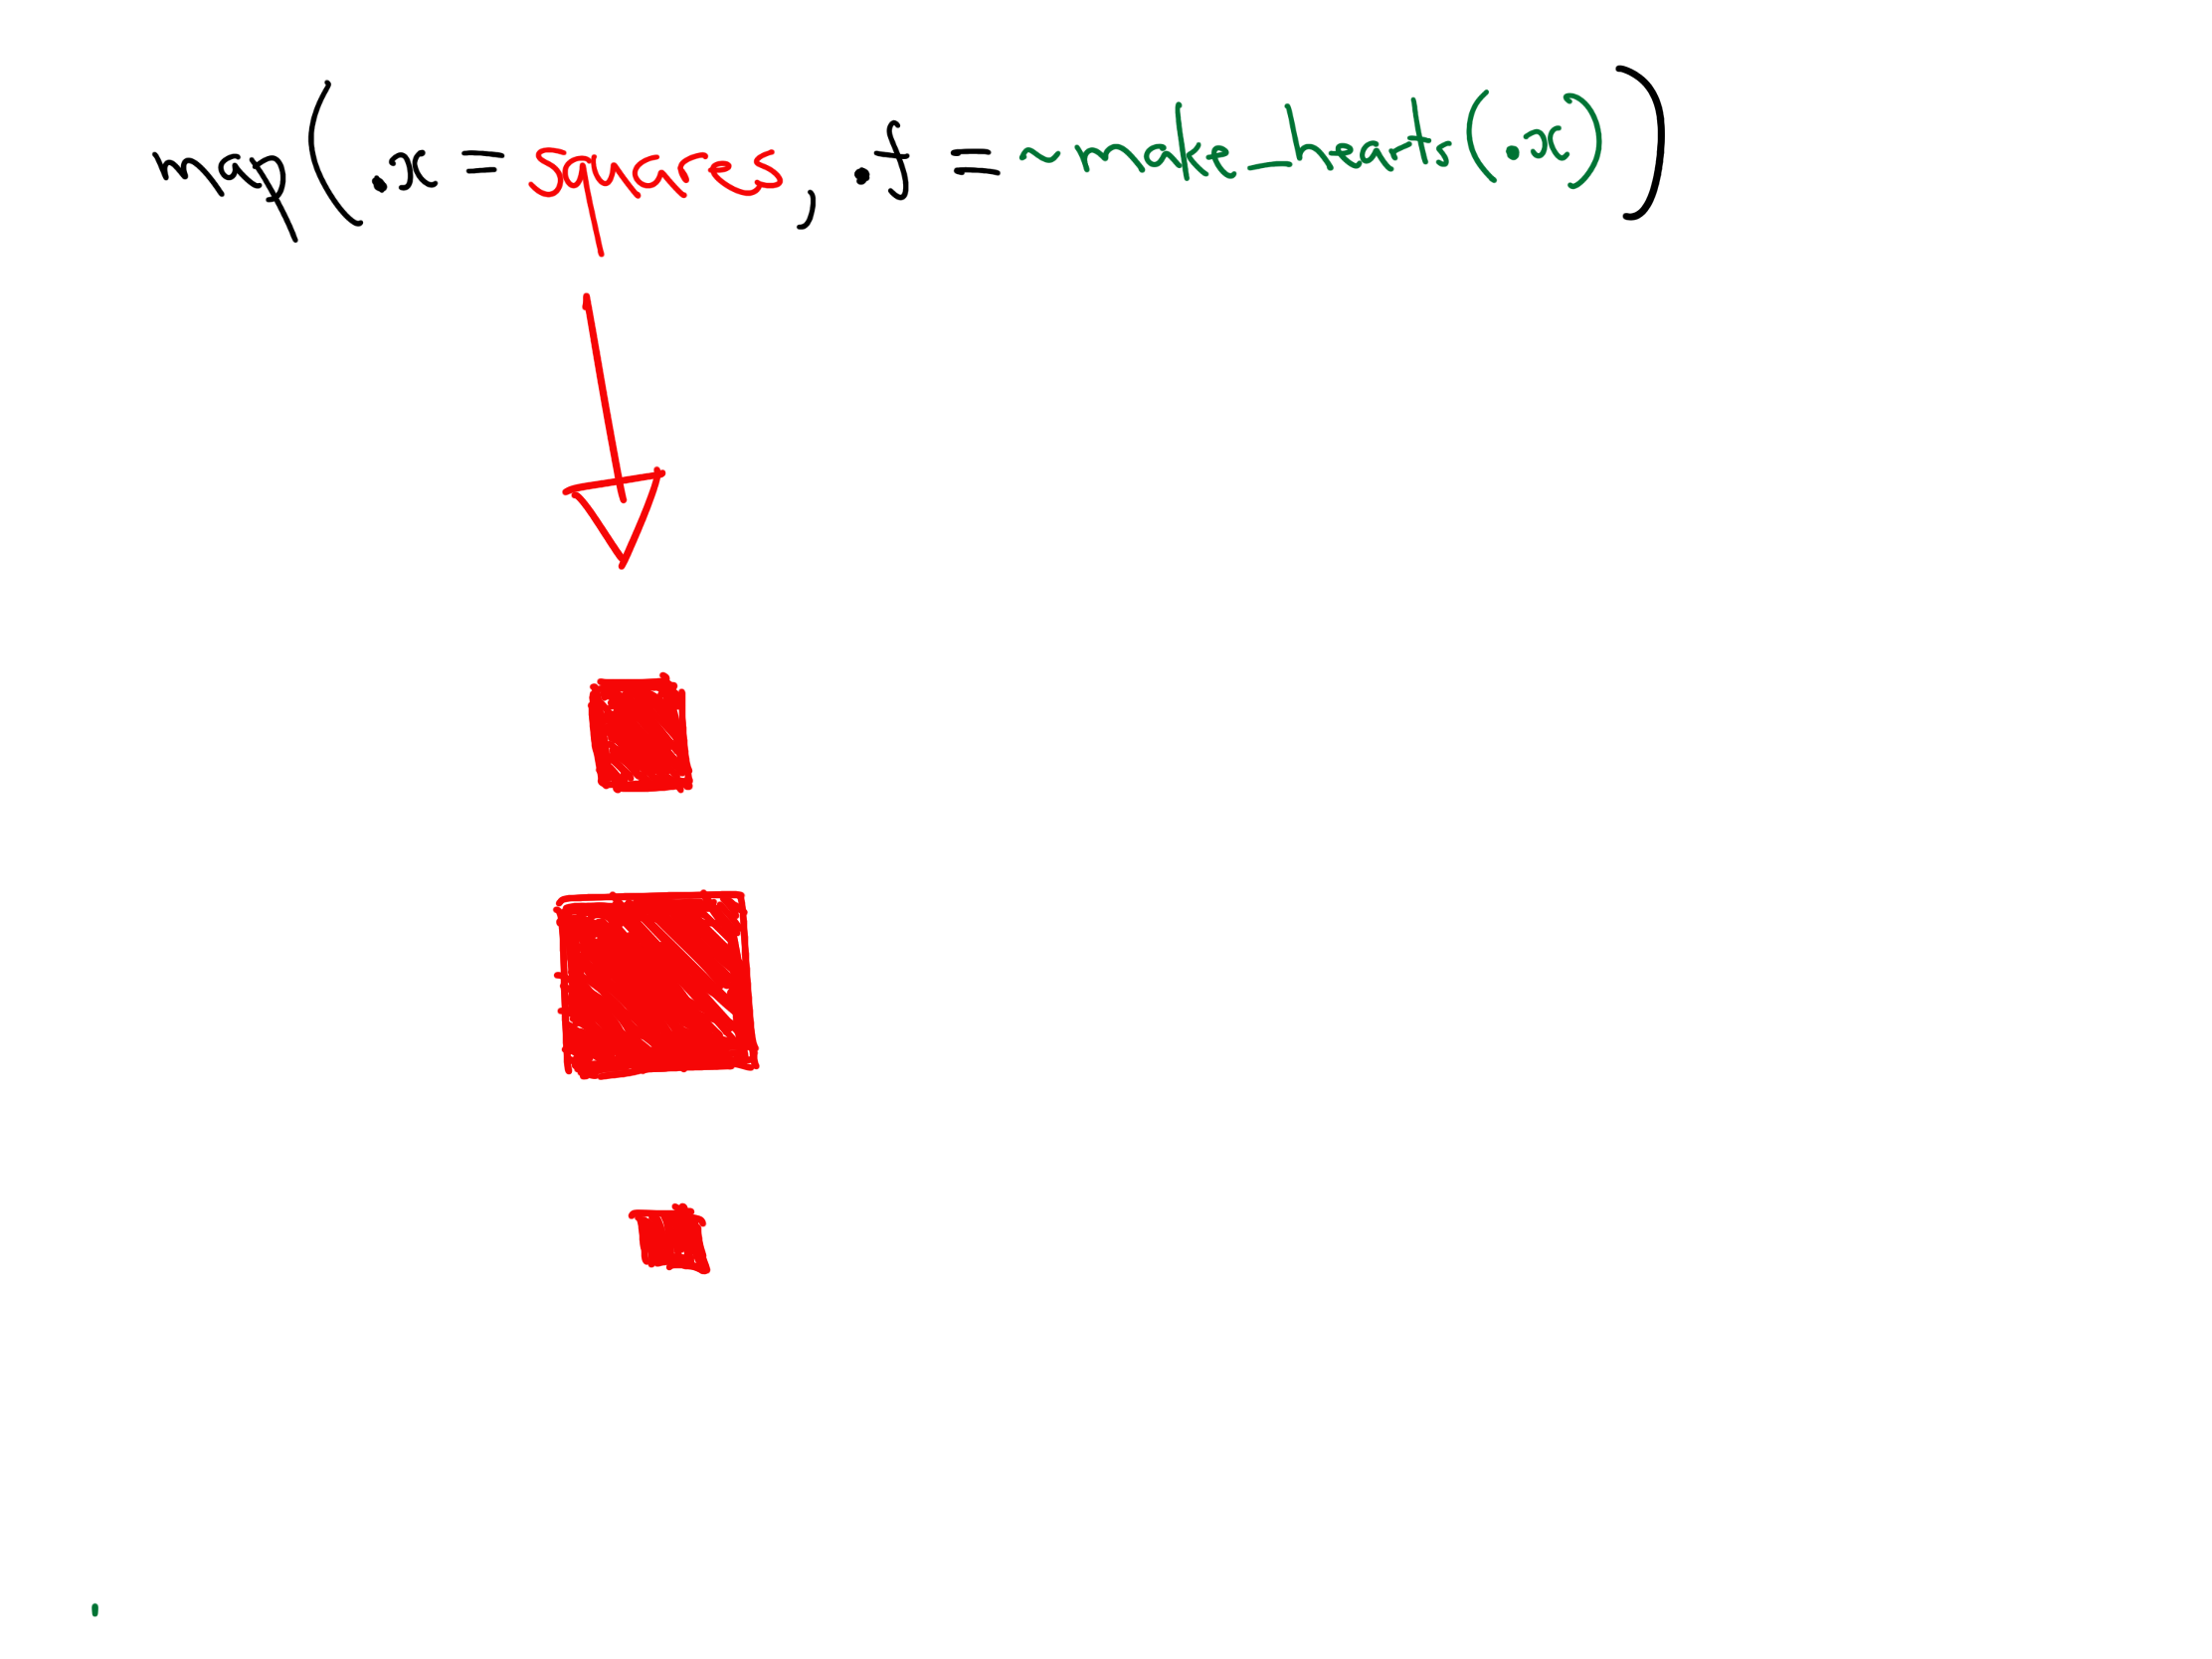 map(.x = squares, .f = ~ make_hearts(.x))